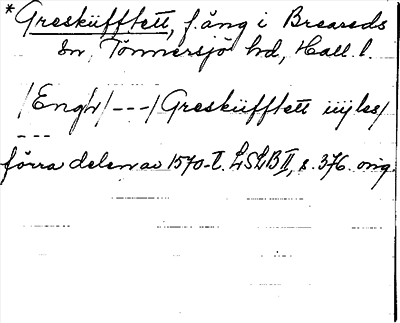 * Greskiifftett, f. äng i Breareds
sn, Tönnersjö hd, Hall. l.
/Engh/ --- / Greskiifftett iiij lass/
---
förra delen av 1570-t. LSLB II, s. 376. orig.